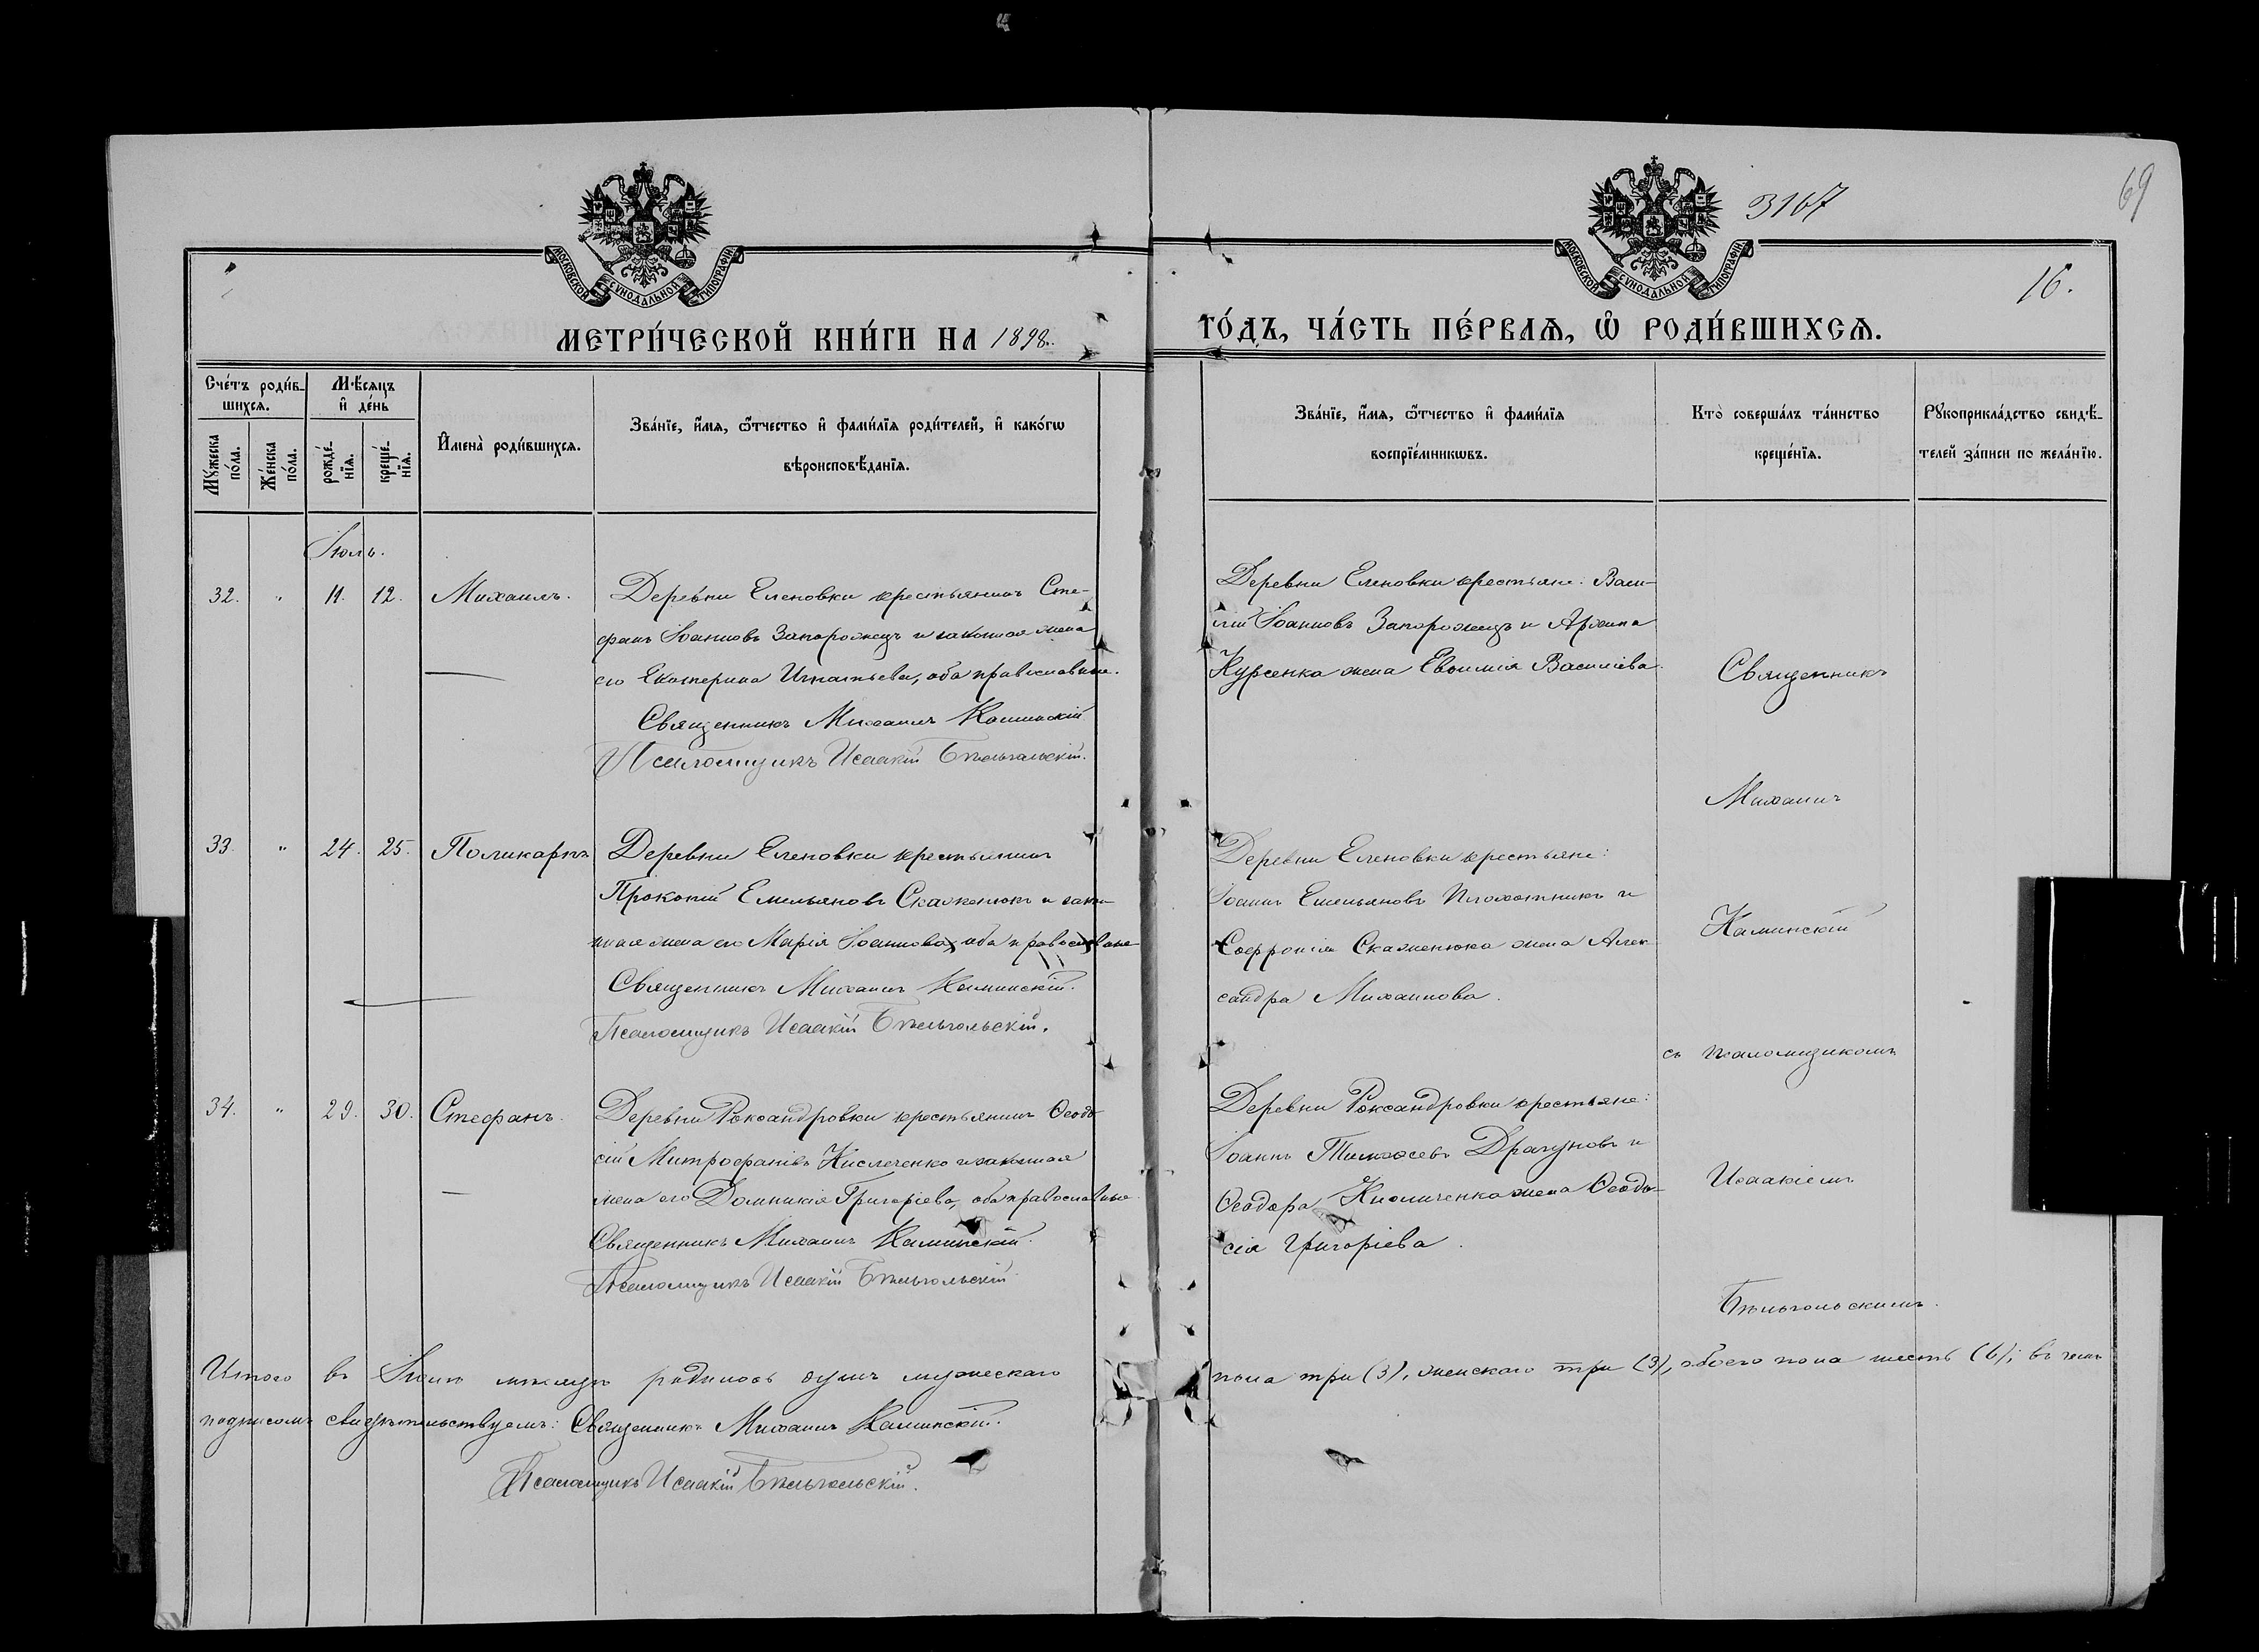 3167
69
16.
МОСКОВСКОЙ СѴНОДАЛЬНОЙ ТИПОГРАФІИ
МОСКОВСКОЙ СѴНОДАЛЬНОЙ ТИПОГРАФІИ
МЕТРИ́ЧЕСКОЙ КНИ́ГИ НА 1898
ГО́ДЪ, ЧА́СТЬ ПЕ́РВАѦ, Ѡ҆ РОДИ́ВШИХСѦ.
Сче́тъ роди́в-
шихсѧ.
Мѣ́сѧцъ
и҆ де́нь
Мꙋ́жеска
по́ла.
Же́нска
по́ла.
рожде́-
нїѧ.
креще́-
нїѧ.
И҆мена̀ роди́вшихсѧ.
Зва́нїе, и҆́мѧ, ѻ҆́тчество и҆ фами́лїѧ роди́телей, и҆ како́гѡ
вѣроисповѣ́данїѧ.
Зва́нїе, и҆́мѧ, ѻ҆́тчество и҆ фами́лїѧ
воспрїе́мникѡвъ.
Кто̀ соверша́лъ та́инство
креще́нїѧ.
Рꙋкоприкла́дство свидѣ́-
телей за́писи по жела́нїю.
Іюль.
32. " 11. 12. Михаилъ.
Деревни Еленовки крестьянинъ Сте-
фанъ Іоанновъ Запорожецъ и законная жена
его Екатерина Игнатьева, оба православные.
Священникъ Михаилъ Каминскій
Псаломщикъ Исаакій Бѣльгольскій.
Деревни Еленовки крестьяне: Васи-
лій Іоанновъ Запорожецъ и
Курсенка жена Евѳимія Василіева.
33. " 24. 25. Поликарпъ
Деревни Еленовки крестьянинъ
Прокопій Емельяновъ Скаженюкъ и зако-
нная жена его Марія Іоаннова, оба православные
Священникъ Михаилъ Каминскій.
Псаломщикъ Исаакій Бѣльгольскій.
Деревни Еленовки крестьяне:
Іоаннъ Емельяновъ Плохотникъ и
Софронія Скаженюка жена Алек-
сандра Михаилова.
34. " 29. 30. Стефанъ.
Деревни Роксандровки крестьянинъ Ѳеодо-
сій Митрофановъ Кисличенко и законная
жена его Домникія Григоріева, оба православные
Священникъ Михаилъ Каминскій.
Псаломщикъ Исаакій Бѣльгольскій
Деревни Роксандровки крестьяне:
Іоаннъ Тимоѳеевъ Драгуновъ и
Ѳеодора жена Ѳеодо-
сія Григоріева.
Священникъ
Михаилъ
Каминскій
съ псаломщикомъ
Исаакіемъ
Бѣльгольскимъ.
Итого въ Іюлѣ мѣсяцѣ родилось душъ мужескаго
пола три (3), женскаго три (3), обоего пола шесть (6); въ чемъ
подписомъ свидѣтельствуемъ: Священникъ Михаилъ Каминскій.
Псаломщикъ Исаакій Бѣльгольскій.